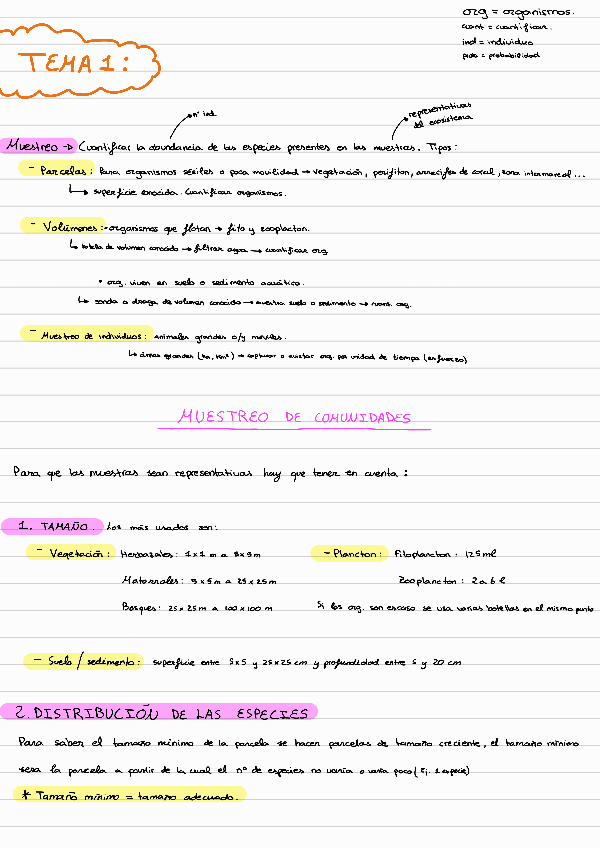 org = organismos.
cuant = cuantificar.
ind = individuo
prob = probabilidad
TEMA 1:
nº ind.
representativas
del ecosistema
Muestreo → Cuantificar la abundancia de las especies presentes en las muestras. Tipos:
- Parcelas: Para organismos sésiles o poca movilidad → vegetación, perifiton, arrecifes de coral, zona intermareal...
↳ superficie conocida. Cuantificar organismos.
- Volúmenes: - organismos que flotan → fito y zooplacton.
↳ botella de volumen conocido → filtrar agua → cuantificar org
• org. viven en suelo o sedimento acuático.
↳ sonda o draga de volumen conocido → muestra suelo o sedimento → org.
- Muestreo de individuos: animales grandes o/y móviles.
↳ áreas grandes (ha, km²) → capturar o avistar org. por unidad de tiempo (esfuerzo)
MUESTREO DE COMUNIDADES
Para que las muestras sean representativas hay que tener en cuenta:
1. TAMAÑO. Los más usados son:
- Vegetación: Herbazales: 1x1 m a 5x5m - Plancton: Fitoplancton: 125 ml
Matorrales: 5x5m a 25x25m Zooplancton: 2 a 6 l
Bosques: 25x25m a 100x100 m Si los org. son escaso se usa varias botellas en el mismo punto
- Suelo / sedimento: superficie entre 5x5 y 25x25 cm y profundidad entre 5 y 20 cm
2. DISTRIBUCIÓN DE LAS ESPECIES
Para saber el tamaño mínimo de la parcela se hacen parcelas de tamaño creciente, el tamaño mínimo
sera la parcela a partir de la cual el nº de especies no varía o varía poco (Ej. 1 especie)
* Tamaño mínimo = tamaño adecuado.